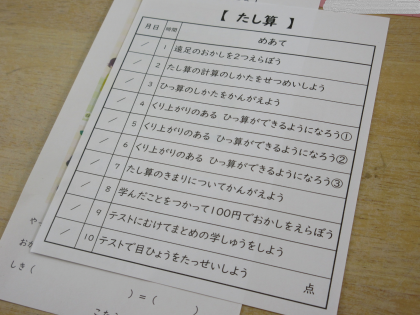 【 たし算 】
月日 時間 めあて
／ 1 遠足のおかしを2つえらぼう
／ 2 たし算の計算のしかたをせつめいしよう
／ 3 ひっ算のしかたをかんがえよう
／ 4 くり上がりのある ひっ算ができるようになろう①
／ 5 くり上がりのある ひっ算ができるようになろう②
／ 6 くり上がりのある ひっ算ができるようになろう③
／ 7 たし算のきまりについてかんがえよう
／ 8 学んだことをつかって100円でおかしをえらぼう
／ 9 テストにむけてまとめの学しゅうをしよう
／ 10 テストで目ひょうをたっせいしよう 点
や
おか
しき（
）＝（ ）